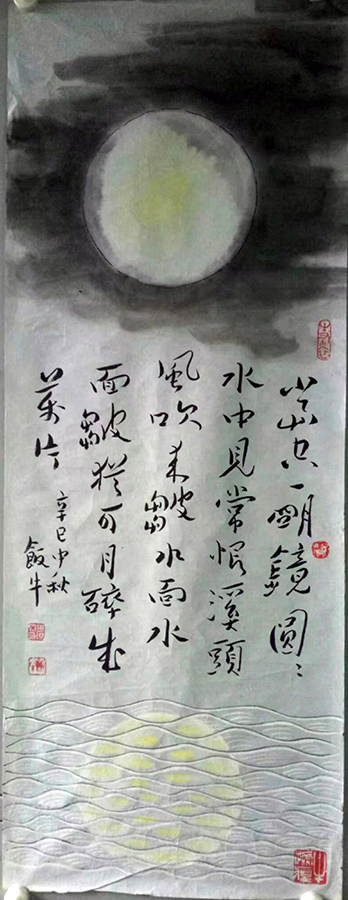 當空一明鏡圓〻
水中見常恨溪頭
風吹来皺水面水
面皺猶可月碎成
萬片
辛巳中秋
飯牛